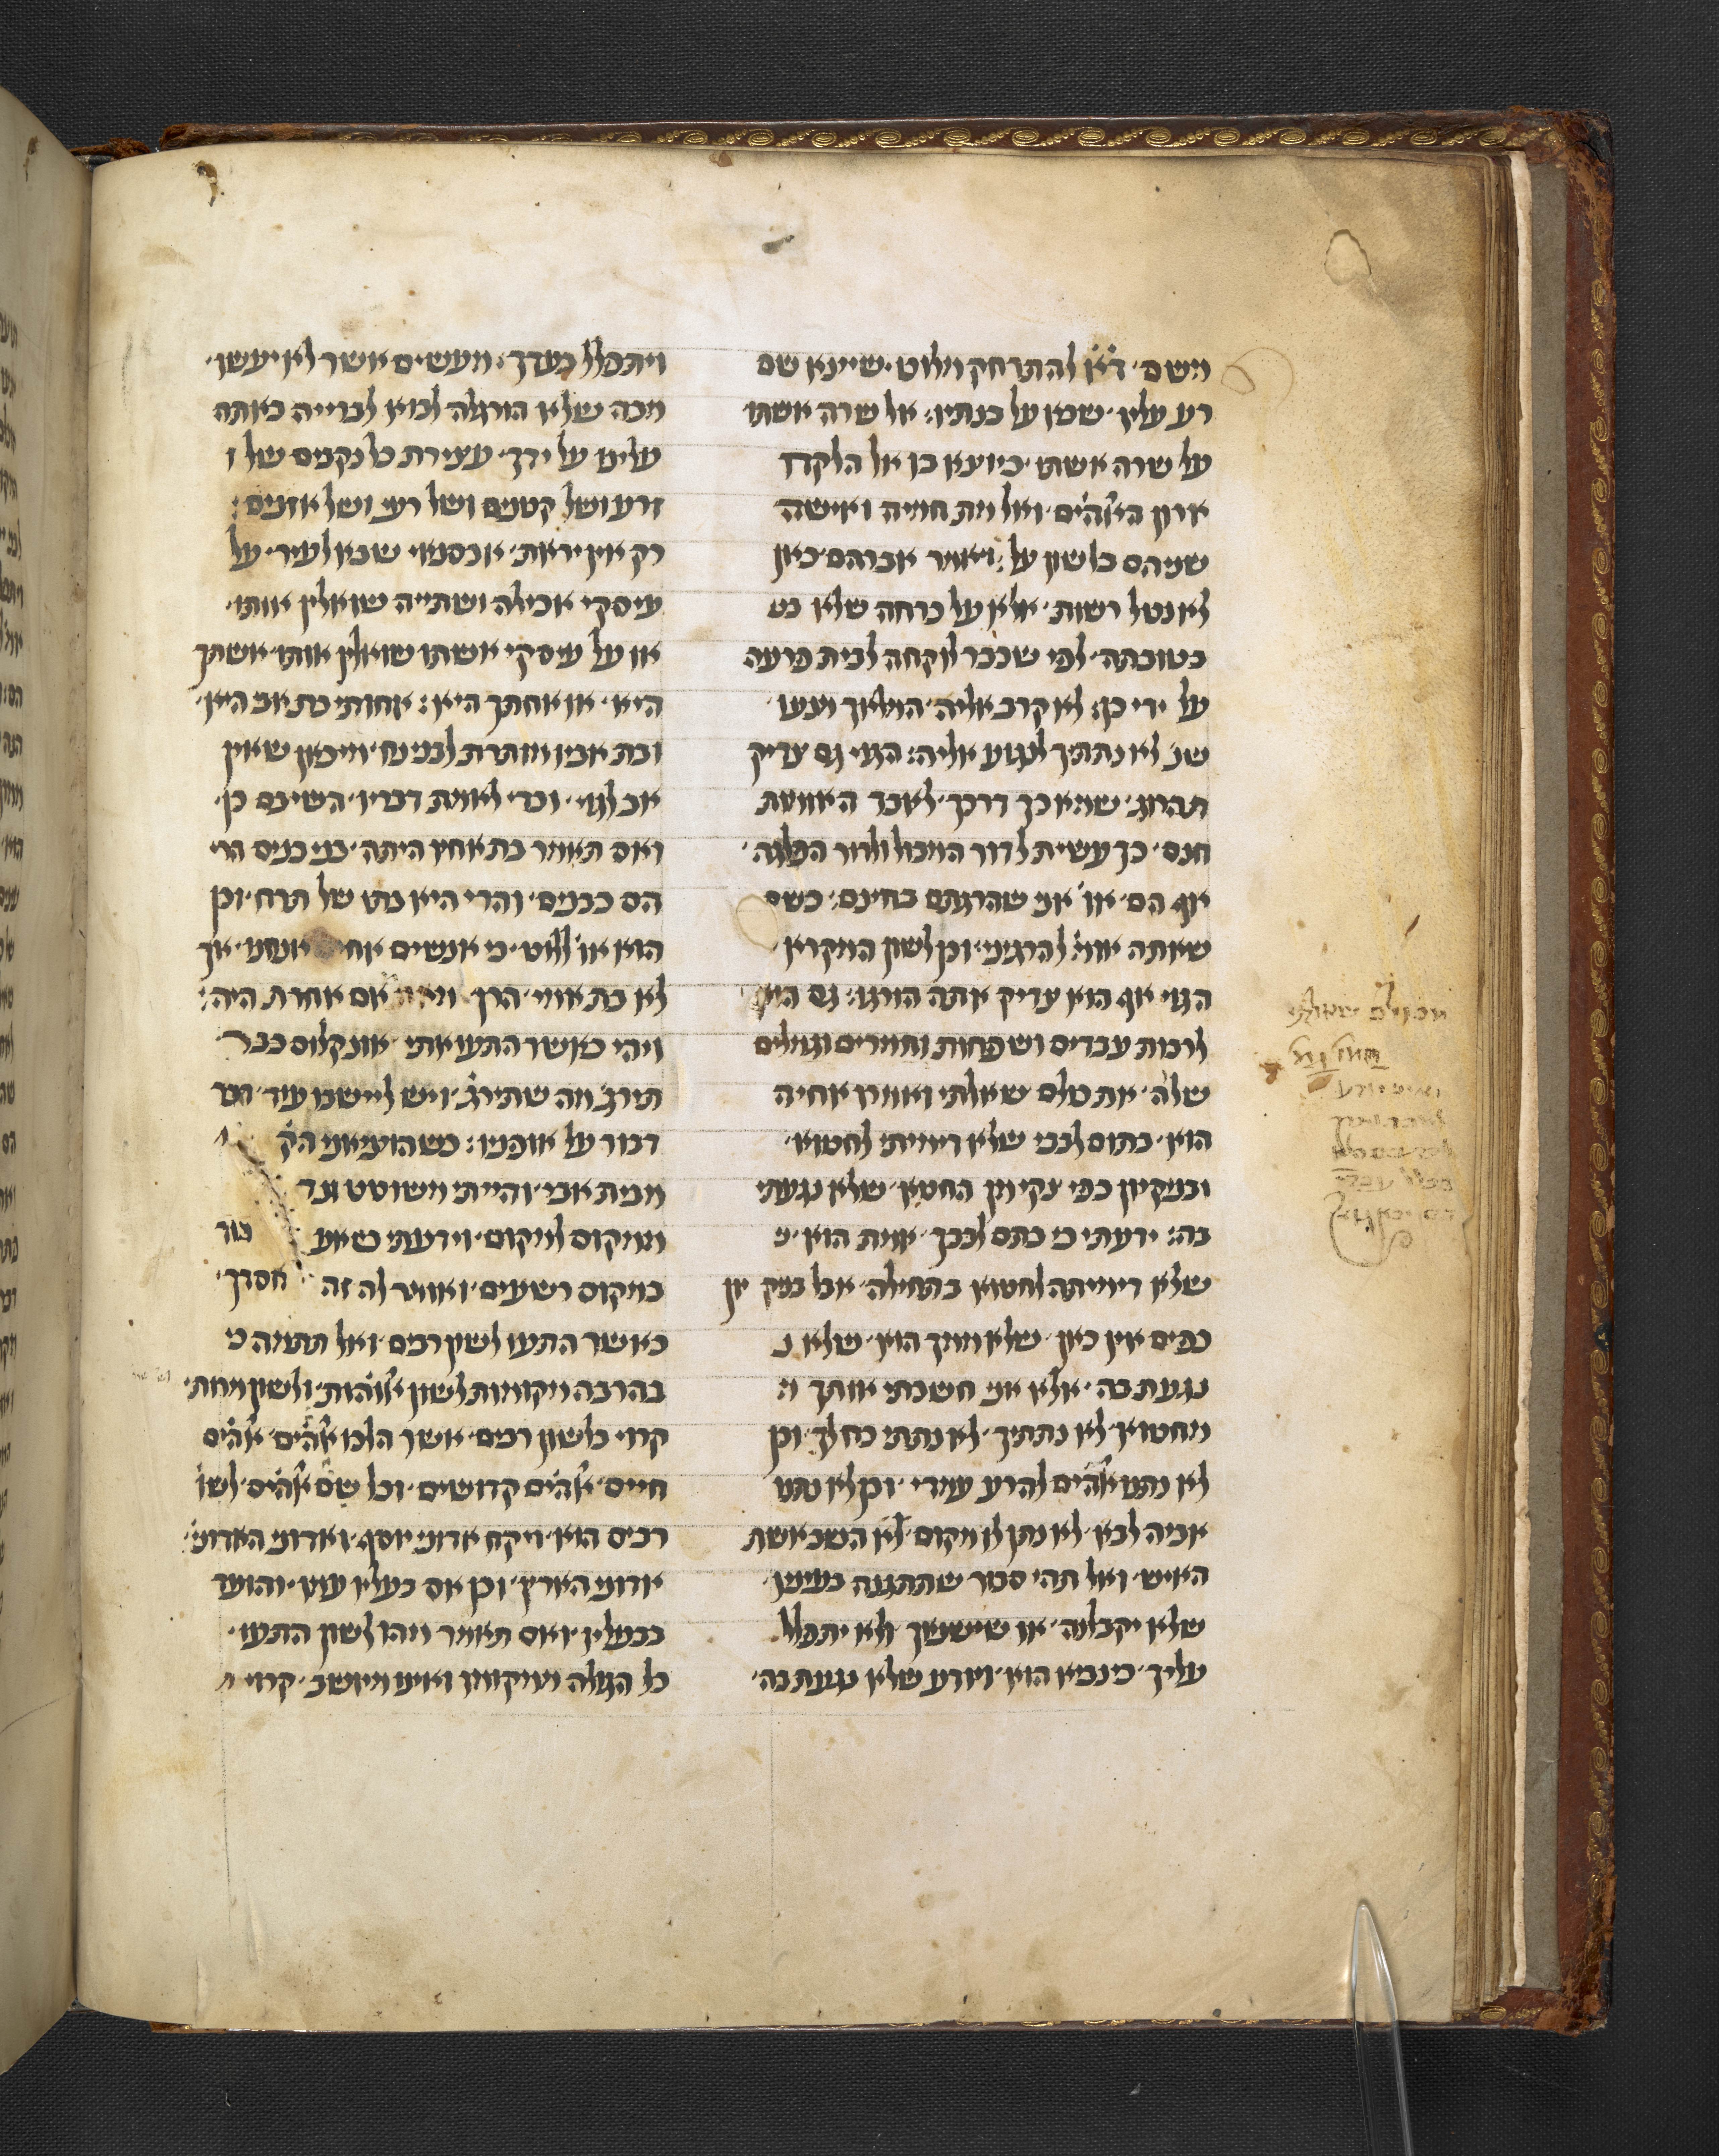 משם׳ ד״א להתרחק מלוט׳ שיינא שם
רע עליו׳ שבא על בנתיו: אל שרה אשתו
על שרה אשתו׳ כיוצא בו אל הלקח
ארון האלהים׳ ואל מת חמיה ואישה
שניהם בלשון על: ויאמר אברהם כאן
לא נטל רשות׳ אלא על כרחה שלא
בטובתה׳ לפי שכבר לוקחה לבית פרעה
על ידי כן: לא קרב אליה׳ המלאך מנעו׳
שנ׳ לא נתתיך לנגוע אליה: הגוי גם צדיק
תהרוג׳ שמא כך דרכך׳ לאבד האומות
חנם׳ כך עשית לדור המבול ולדור הפלגה׳
אף הם׳ או׳ אני שהרגתם בחינם׳ כשם
שאתה או׳ להרגיני׳ וכן לשון המקרא
הגוי אף הוא צדיק אתה הורגו: גם היא
לרבות עבדים ושפחות וחמרים וגמלים
שלה׳ את כולם שאלתי ואמרו אחיה
הוא׳ בתום לבבי שלא דימיתי לחטוא׳
ובנקיון כפי נקי מן החטא׳ שלא נגעתי
בה: ידעתי כי בתם לבבך׳ אמת הוא׳
שלא דימייתה לחטוא בתחילה׳ אבל בנק יון
כפים אין כאן׳ שלא ממך הוא׳ שלא
נגעת בה׳ אלא אני חשכתי אותך
מחטוא׳ לא נתתיך׳ לא נתתי כח לך׳ וכן
לא נתנו אלהים להרע עמדי׳ וכן לא נתנו
אביה לבא׳ לא נתן לו מקום׳ לא השב אשת
האיש׳ ואל תהי סבור שתתגנה בעיניו
שלא יקבלנה׳ או שישנאך ולא יתפלל
עליך׳ כי נביא הוא׳ ויודע שלא נגעת בה׳
ויתפלל בעדך׳ מעשים אשר לא יעשו׳
מכה שלא הורגלה לבוא לברייה באתה
עלינו על ידך׳ עצירת כל נקבים של
זרע ושל קטנים ושל רעי ושל אזנים:
רק אין יראת׳ אכסנאי שבא לעיר׳ על
עיסקי אכילה ושתייה שואלין אותו׳
או על עיסקי אשתו שואלין אותו׳ אשתך
היא׳ או אחתך היא: אחותי בת אבי היא׳
ובת אביו מותרת לבני נח׳ מיכאן שאין
אב לגוי׳ וכדי לאמת דבריו׳ השיבם כן׳
ואם תאמר בת אחיו היתה׳ בני בנים הרי
הם כבנים׳ והרי היא בתו של תרח׳ וכן
הוא או׳ ללוט׳ כי אנשים אחי אנחנו׳ אך
לא בת אמי׳ הרן אם אחרת היה:
ויהי כאשר התעו אתי׳ אונקלוס כבר
תירג׳ מה שתירג׳׳ ויש ליישבו עוד׳
דבור על אופניו: כשהוציאני הק׳
מבית אבי׳ והייתי משוטט ונד
ממקום למקום׳ וידעתי שאע׳ בור
במקום רשעים׳ ואומר לה זה חסדך׳
כאשר התעו לשון רבים׳ ואל תתמה כי
בהרבה מקומות לשון אלוהות׳ ולשון מרות׳
קרוי בלשון רבים׳ אשר הלכו אלהים׳ אלהים
חיים׳ אלהים קדושים׳ וכל שם אלהים׳ לשו׳
רבים הוא׳ ויקח אדוני יוסף׳ ואדוני האדוני׳
אדוני הארץ׳ וכן אם בעליו עמו׳ והועד
בבעליו׳ ואם תאמר ומהו לשון התעו׳
כל הגולה ממקומו ואינו מיושב׳ קרוי